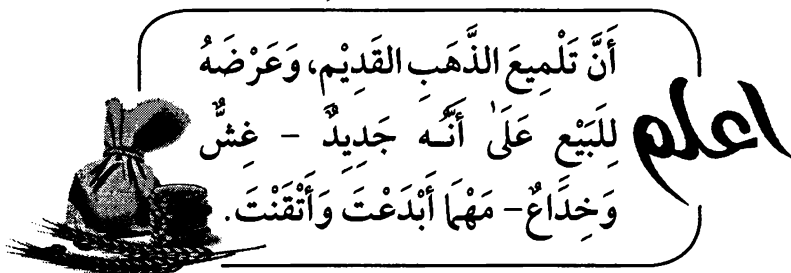 اعلم
أَنَّ تَلْمِيعَ الذَّهَبِ القَدِيْمِ، وَعَرْضَهُ
لِلبَيْعِ عَلَىٰ أَنَّـه جَدِيدٌ – غِشٌّ
وَخِدَاعٌ – مَهْمَا أَبْدَعْتَ وَأَتْقَنْتَ.